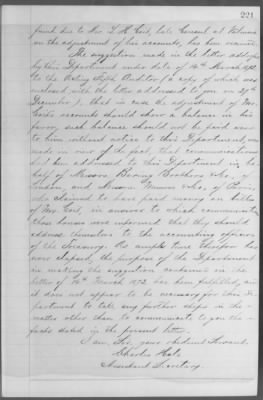 221
found due to Mr. T. H. Cuit, late Consul at
on the adjustment of his accounts, has been received.
The suggestion made in the letter addressed
by this Department under date of 14th March, 1872
to the Acting Fifth Auditor (a copy of which was
enclosed with the letter addressed to you on 27th
December), that in case the adjustment of Mr.
accounts should show a balance in his
favor, such balance should not be paid over
to him without notice to this Department, was
made in view of the fact, that communications
had been addressed to this Department in be-
half of Messrs Baring Brothers &Co., of
London, and Messrs Munroe &Co., of Paris,
who claimed to have paid money on bills
of Mr. in answer to which communications
these houses were informed that they should
address themselves to the accounting officers
of the Treasury. As ample time therefor has
now elapsed, the purpose of the Department
in making the suggestion contained in the
letter of 14th March 1872 has been fulfilled, and
it does not appear to be necessary for this De-
partment to take any further steps in the
matter other than to communicate to you the
facts stated in the present letter.
I am, Sir, your obedient servant,
Charles Hale
Assistant Secretary.